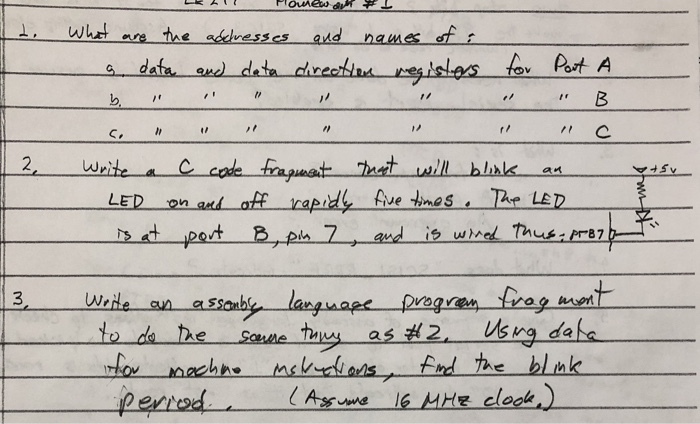 Homework #1
1. What are the addresses and names of :
a. data and data direction registers for Port A
b. " " " " " " " B
c. " " " " " " " C
2. Write a C code fragment that will blink an
+5v
LED on and off rapidly five times. The LED
is at port B, pin 7, and is wired thus: PTB7
3. Write an assembly language program fragment
to do the same thing as #2. Using data
for machine instructions, find the blink
period. (Assume 16 MHz clock.)